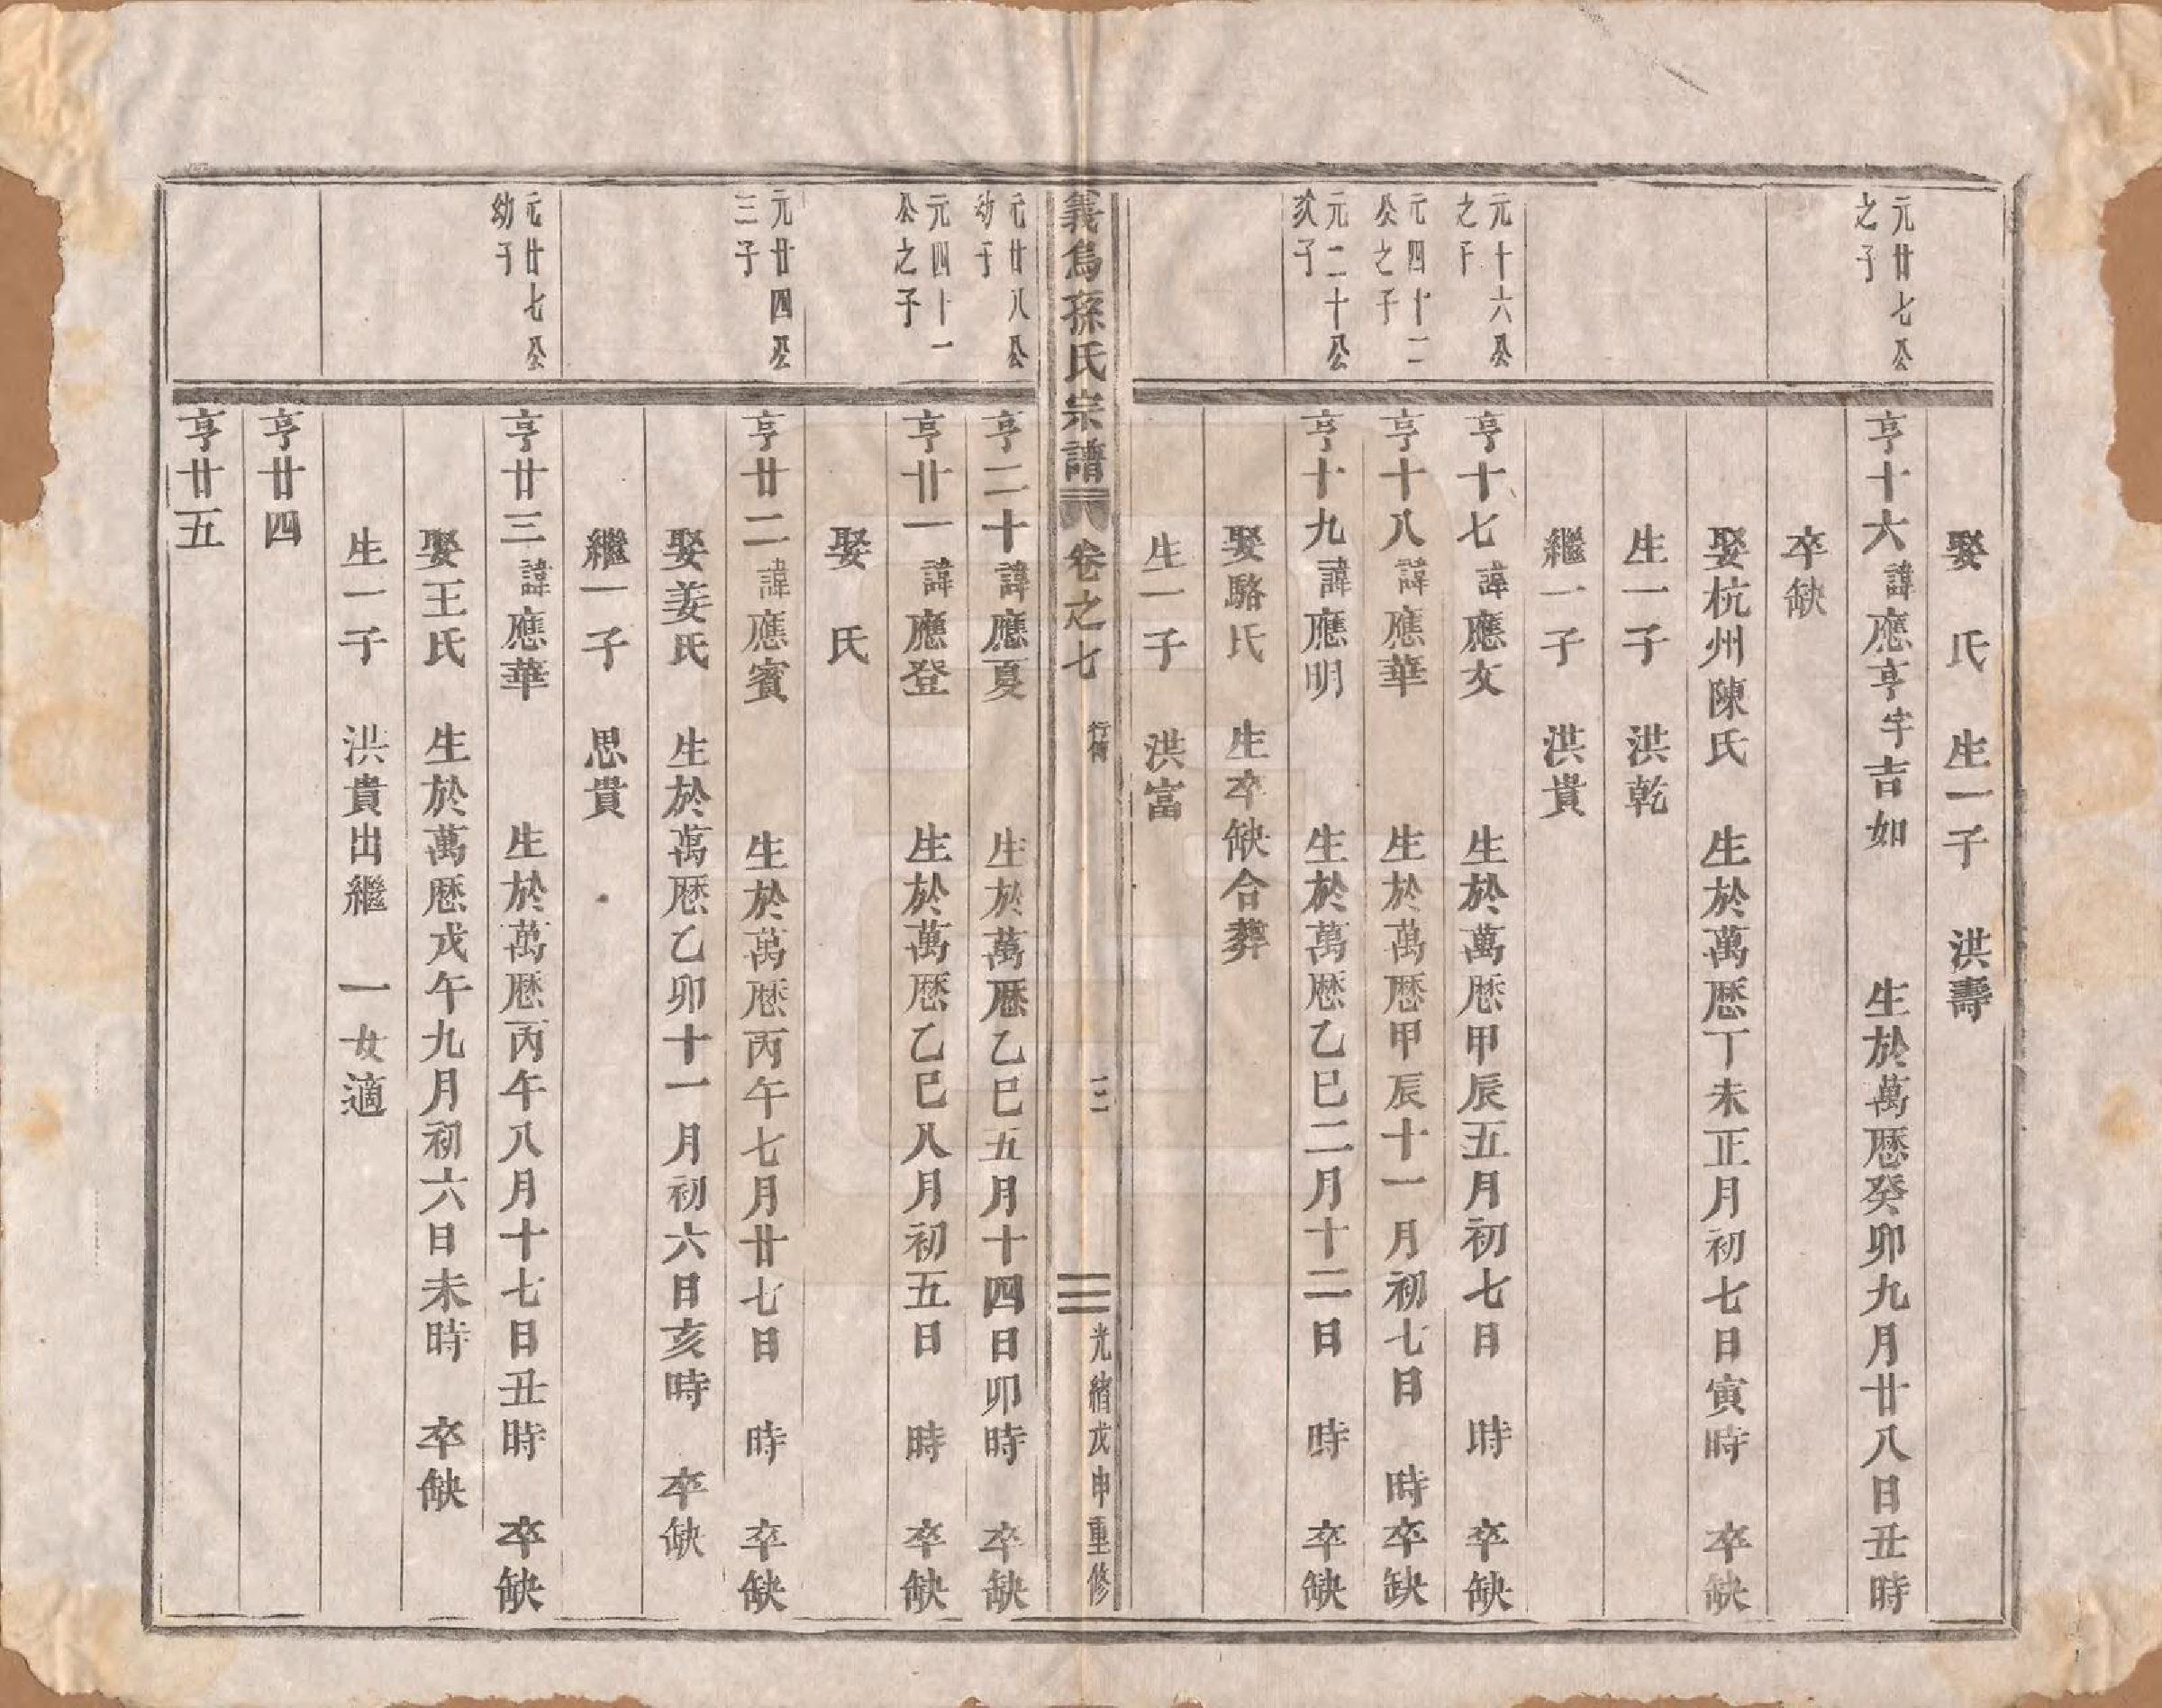 娶　氏　生一子　洪壽
元廿七公
之子
亨十六諱應亨字吉如　生於萬歷癸卯九月廿八日丑時
卒缺
娶杭州陳氏　生於萬歷丁未正月初七日寅時　卒缺
生一子　洪乾
繼一子　洪貴
元十六公
之子
亨十七諱應文　生於萬歷甲辰五月初七日　時　卒缺
元四十二
公之子
亨十八諱應華　生於萬歷甲辰十一月初七日　時卒缺
元二十公
次子
亨十九諱應明　生於萬歷乙巳二月十二日　時　卒缺
娶駱氏　生卒缺合葬
生一子　洪富
義烏孫氏宗譜　卷之七　行傳　三　光緒戊申重修
元廿八公
幼子
亨二十諱應夏　生於萬歷乙巳五月十四日卯時　卒缺
元四十一
公之子
亨廿一諱應登　生於萬歷乙巳八月初五日　時　卒缺
娶　氏
元廿四公
三子
亨廿二諱應賓　生於萬歷丙午七月廿七日　時　卒缺
娶姜氏　生於萬歷乙卯十一月初六日亥時　卒缺
繼一子　思貴
元廿七公
幼子
亨廿三諱應華　生於萬歷丙午八月十七日丑時　卒缺
娶王氏　生於萬歷戊午九月初六日未時　卒缺
生一子　洪貴出繼　一女適
亨廿四
亨廿五